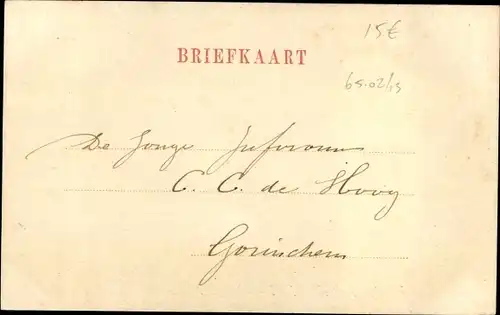 15€
BRIEFKAART
65.02/15
De Jonge Jufvrouw
C. C. de Hoog
Gorinchem